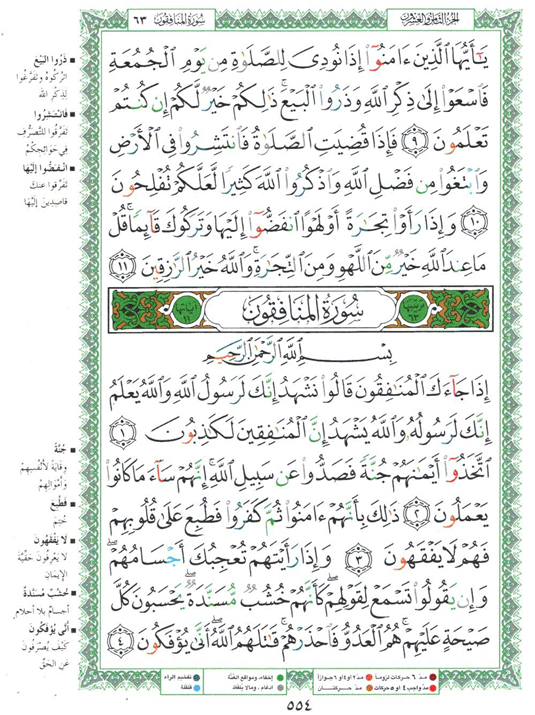 الجزء الثامن والعشرون
سورة المنافقون ٦٣
يَـٰٓأَيُّهَا ٱلَّذِينَ ءَامَنُوٓا۟ إِذَا نُودِىَ لِلصَّلَوٰةِ مِن يَوْمِ ٱلْجُمُعَةِ
فَٱسْعَوْا۟ إِلَىٰ ذِكْرِ ٱللَّهِ وَذَرُوا۟ ٱلْبَيْعَ ۚ ذَٰلِكُمْ خَيْرٌ لَّكُمْ إِن كُنتُمْ
تَعْلَمُونَ ٩ فَإِذَا قُضِيَتِ ٱلصَّلَوٰةُ فَٱنتَشِرُوا۟ فِى ٱلْأَرْضِ
وَٱبْتَغُوا۟ مِن فَضْلِ ٱللَّهِ وَٱذْكُرُوا۟ ٱللَّهَ كَثِيرًا لَّعَلَّكُمْ تُفْلِحُونَ
١٠ وَإِذَا رَأَوْا۟ تِجَـٰرَةً أَوْ لَهْوًا ٱنفَضُّوٓا۟ إِلَيْهَا وَتَرَكُوكَ قَآئِمًا ۚ قُلْ
مَا عِندَ ٱللَّهِ خَيْرٌ مِّنَ ٱللَّهْوِ وَمِنَ ٱلتِّجَـٰرَةِ ۚ وَٱللَّهُ خَيْرُ ٱلرَّٰزِقِينَ ١١
ترتيبها ٦٣ سُورَةُ المُنَافِقُونَ آياتها ١١
بِسْمِ ٱللَّهِ ٱلرَّحْمَـٰنِ ٱلرَّحِيمِ
إِذَا جَآءَكَ ٱلْمُنَـٰفِقُونَ قَالُوا۟ نَشْهَدُ إِنَّكَ لَرَسُولُ ٱللَّهِ ۗ وَٱللَّهُ يَعْلَمُ
إِنَّكَ لَرَسُولُهُۥ وَٱللَّهُ يَشْهَدُ إِنَّ ٱلْمُنَـٰفِقِينَ لَكَـٰذِبُونَ ١
ٱتَّخَذُوٓا۟ أَيْمَـٰنَهُمْ جُنَّةً فَصَدُّوا۟ عَن سَبِيلِ ٱللَّهِ ۚ إِنَّهُمْ سَآءَ مَا كَانُوا۟
يَعْمَلُونَ ٢ ذَٰلِكَ بِأَنَّهُمْ ءَامَنُوا۟ ثُمَّ كَفَرُوا۟ فَطُبِعَ عَلَىٰ قُلُوبِهِمْ
فَهُمْ لَا يَفْقَهُونَ ٣ وَإِذَا رَأَيْتَهُمْ تُعْجِبُكَ أَجْسَامُهُمْ ۖ
وَإِن يَقُولُوا۟ تَسْمَعْ لِقَوْلِهِمْ ۖ كَأَنَّهُمْ خُشُبٌ مُّسَنَّدَةٌ ۖ يَحْسَبُونَ كُلَّ
صَيْحَةٍ عَلَيْهِمْ ۚ هُمُ ٱلْعَدُوُّ فَٱحْذَرْهُمْ ۚ قَـٰتَلَهُمُ ٱللَّهُ ۖ أَنَّىٰ يُؤْفَكُونَ ٤
ذَرُوا البَيْعَ
اتْرُكُوهُ وتَفَرَّغُوا
لِذِكْرِ الله
فَانْتَشِرُوا
تَفَرَّقُوا للتَّصَرُّفِ
فِي حَوَائِجِكُمْ
انْفَضُّوا إلَيْهَا
تَفَرَّقُوا عنكَ
قاصِدِينَ إلَيْهَا
جُنَّةً
وِقَايَةً لأَنْفُسِهِمْ
وَأَمْوَالِهِمْ
فَطُبِعَ
خُتِمَ
لا يَفْقَهُونَ
لا يَعْرِفُونَ حَقِّيَّةَ
الإيمَانِ
خُشُبٌ مُسَنَّدَةٌ
أجسامٌ بلا أحلام
أنَّى يُؤْفَكُونَ
كَيْفَ يُصْرَفُونَ
عَنِ الحَقِّ
مد ٦ حركات لزوماً
مد ٢ أو ٤ أو ٦ جوازاً
إخفاء، ومواقع الغنّة
تفخيم الراء
مد واجب ٤ أو ٥ حركات
مد حركتان
ادغام، وما لا يُلفظ
قلقلة
٥٥٤